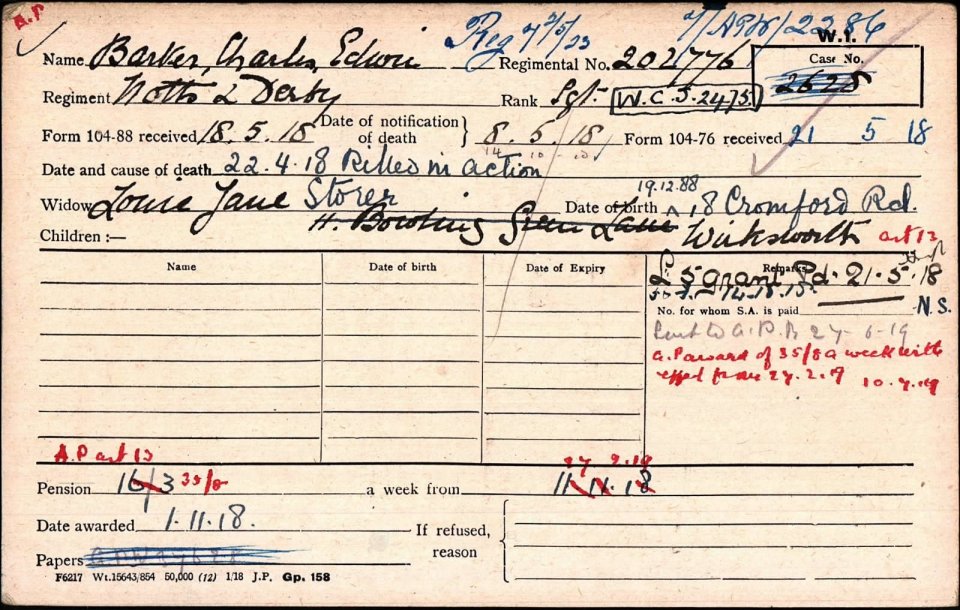 A.P. Reg 7 7/5/23 7/APW/2286
W.I.
Name Barker, Charles, Edwin Regimental No. 202776 Case No. 2628
Regiment Notts & Derby Rank Sgt. W.C.S.2475.
Form 104-88 received 18.5.18 Date of notification of death } 8.5.18 Form 104-76 received 21 5 18
Date and cause of death 22.4.18 Killed in action
Widow Louie Jane Storer Date of birth 19.12.88 18 Cromford Rd.
Children :— H. Bowling Green Lane Wirksworth art 13
Name Date of birth Date of Expiry Remarks
£5 grant Pd. 21.5.18
No. for whom S.A. is paid N.S.
Sent to A.P.B 27-6-19
A.P award of 35/8 a week with
effect from 27.2.19 10.7.19
A.P art 13 27 2.19
Pension 16/3 35/8 a week from 11.11.18
Date awarded 1.11.18. If refused, reason
Papers
F6217 Wt.15643/854 50,000 (12) 1/18 J.P. Gp. 158